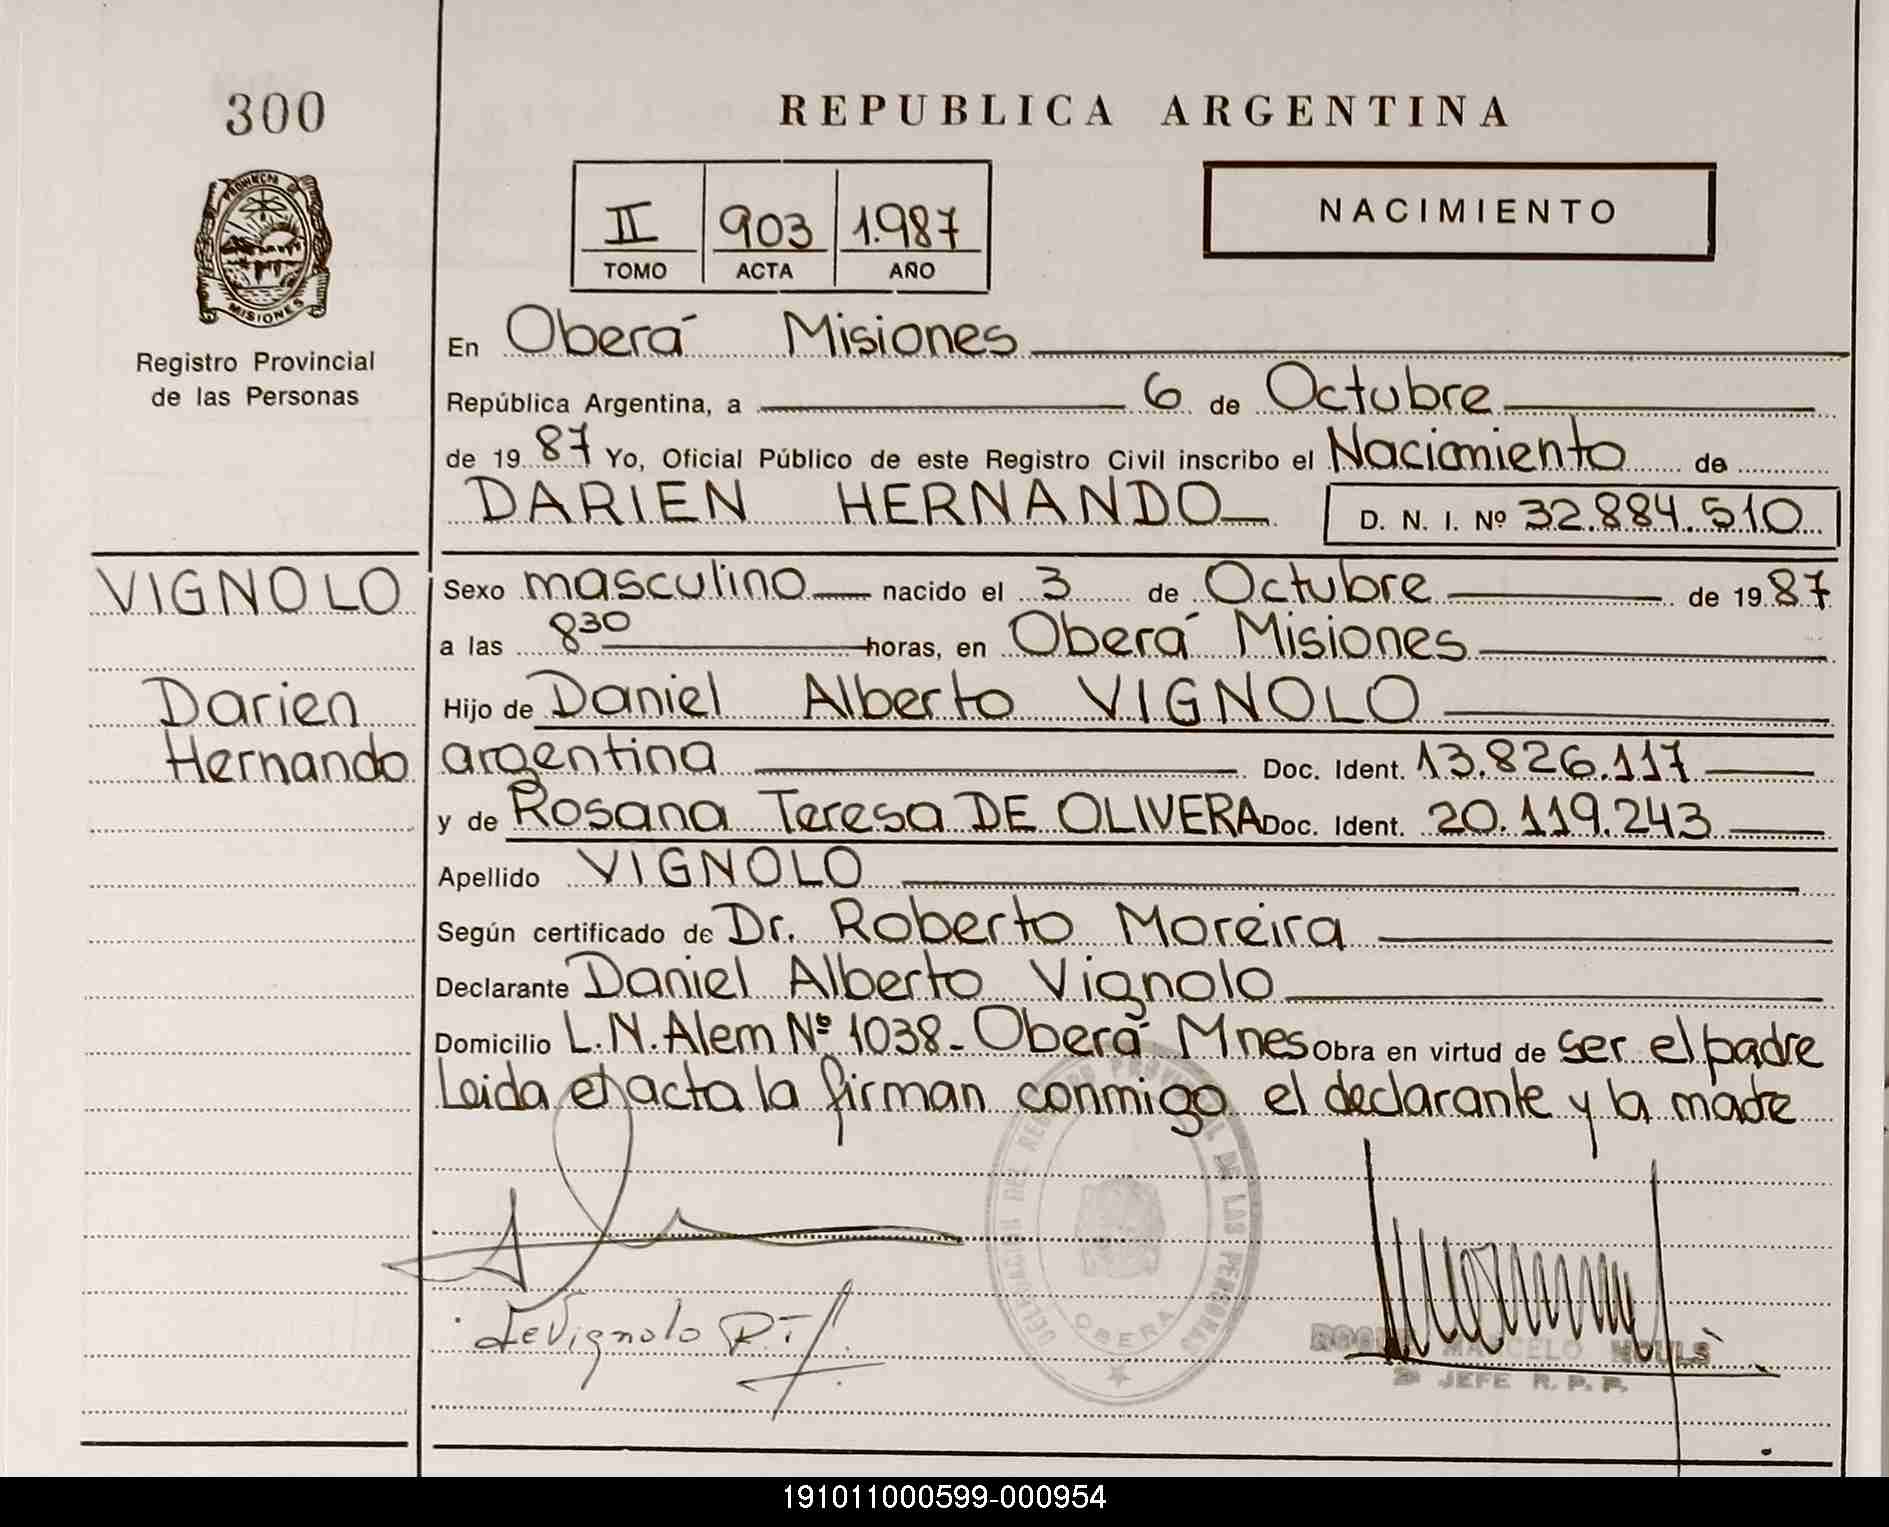 300
REPUBLICA ARGENTINA
PROVINCIA DE
MISIONES
Registro Provincial
de las Personas
II 903 1.987
TOMO ACTA AÑO
NACIMIENTO
En Oberá Misiones
República Argentina, a 6 de Octubre
de 19 87 Yo, Oficial Público de este Registro Civil inscribo el Nacimiento de
DARIEN HERNANDO D. N. I. Nº 32.884.510
VIGNOLO
Darien
Hernando
Sexo masculino nacido el 3 de Octubre de 19 87
a las 8 30 horas, en Oberá Misiones
Hijo de Daniel Alberto VIGNOLO
argentina Doc. Ident. 13.826.117
y de Rosana Teresa DE OLIVERA Doc. Ident. 20.119.243
Apellido VIGNOLO
Según certificado de Dr. Roberto Moreira
Declarante Daniel Alberto Vignolo
Domicilio L.N. Alem Nº 1038 - Oberá Mnes Obra en virtud de ser el padre
Leida el acta la firman conmigo el declarante y la madre
DELEGACION DEL REGISTRO PROVINCIAL DE LAS PERSONAS
OBERA
de Vignolo R.T.
MARCELO
JEFE R. P. P.
191011000599-000954